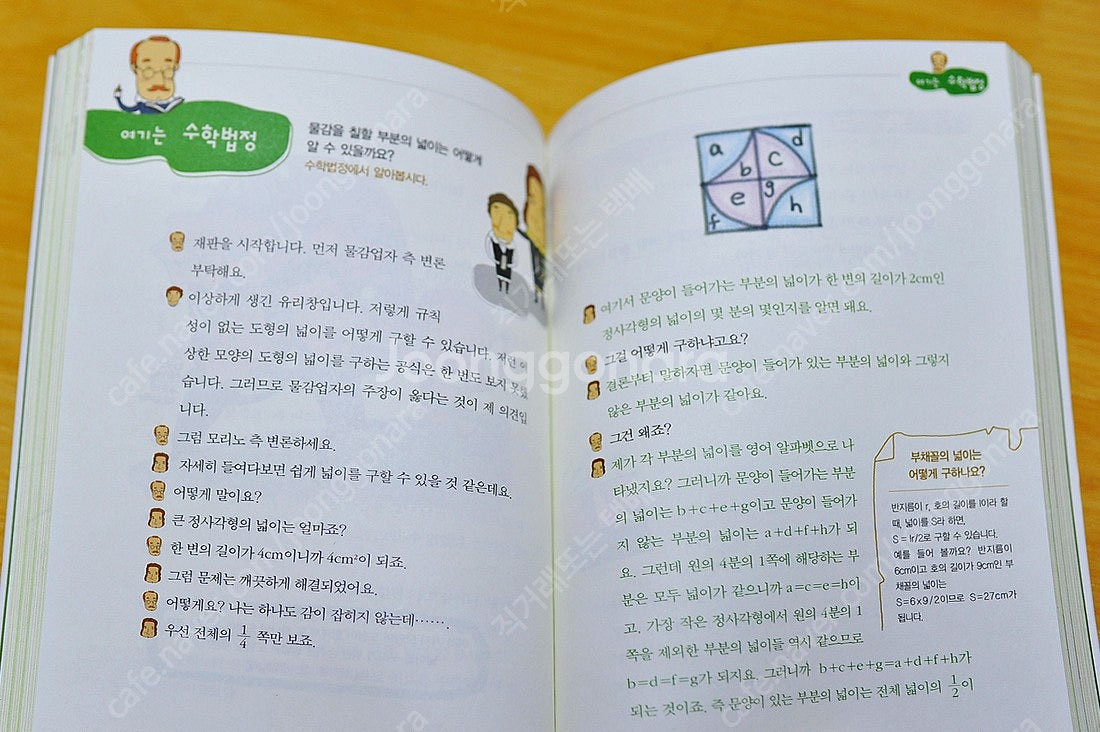 여기는 수학법정
물감을 칠할 부분의 넓이는 어떻게
알 수 있을까요?
수학법정에서 알아봅시다.
재판을 시작합니다. 먼저 물감업자 측 변론
부탁해요.
이상하게 생긴 유리창입니다. 저렇게 규칙
성이 없는 도형의 넓이를 어떻게 구할 수 있습니다. 저런 이
상한 모양의 도형의 넓이를 구하는 공식은 한 번도 보지 못했
습니다. 그러므로 물감업자의 주장이 옳다는 것이 제 의견입
니다.
그럼 모리노 측 변론하세요.
자세히 들여다보면 쉽게 넓이를 구할 수 있을 것 같은데요.
어떻게 말이요?
큰 정사각형의 넓이는 얼마죠?
한 변의 길이가 4cm이니까 4cm²이 되죠.
그럼 문제는 깨끗하게 해결되었어요.
어떻게요? 나는 하나도 감이 잡히지 않는데…….
우선 전체의 1/4 쪽만 보죠.
여기는 수학법정
a
d
b
c
e
g
f
h
여기서 문양이 들어가는 부분의 넓이가 한 변의 길이가 2cm인
정사각형의 넓이의 몇 분의 몇인지를 알면 돼요.
그걸 어떻게 구하냐고요?
결론부터 말하자면 문양이 들어가 있는 부분의 넓이와 그렇지
않은 부분의 넓이가 같아요.
그건 왜죠?
제가 각 부분의 넓이를 영어 알파벳으로 나
타냈지요? 그러니까 문양이 들어가는 부분
의 넓이는 b+c+e+g이고 문양이 들어가
지 않는 부분의 넓이는 a+d+f+h가 되
요. 그런데 원의 4분의 1쪽에 해당하는 부
분은 모두 넓이가 같으니까 a=c=e=h이
고, 가장 작은 정사각형에서 원의 4분의 1
쪽을 제외한 부분의 넓이들 역시 같으므로
b=d=f=g가 되지요. 그러니까 b+c+e+g=a+d+f+h가
되는 것이죠. 즉 문양이 있는 부분의 넓이는 전체 넓이의 1/2이
부채꼴의 넓이는
어떻게 구하나요?
반지름이 r, 호의 길이를 l이라 할
때, 넓이를 S라 하면,
S = lr/2로 구할 수 있습니다.
예를 들어 볼까요? 반지름이
6cm이고 호의 길이가 9cm인 부
채꼴의 넓이는
S=6x9/2이므로 S=27cm가
됩니다.
joonggonara
cafe.naver.com/joonggonara
직거래또는 택배